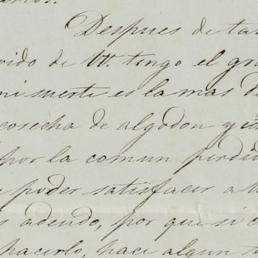 Despues de tan
vido de VV. tengo el gra
mi suerte es la mas de
cosecha de algodon y
por la comun perdi
poder satisfacer a
s adeudo, por que si c
hacerlo, hace algun t